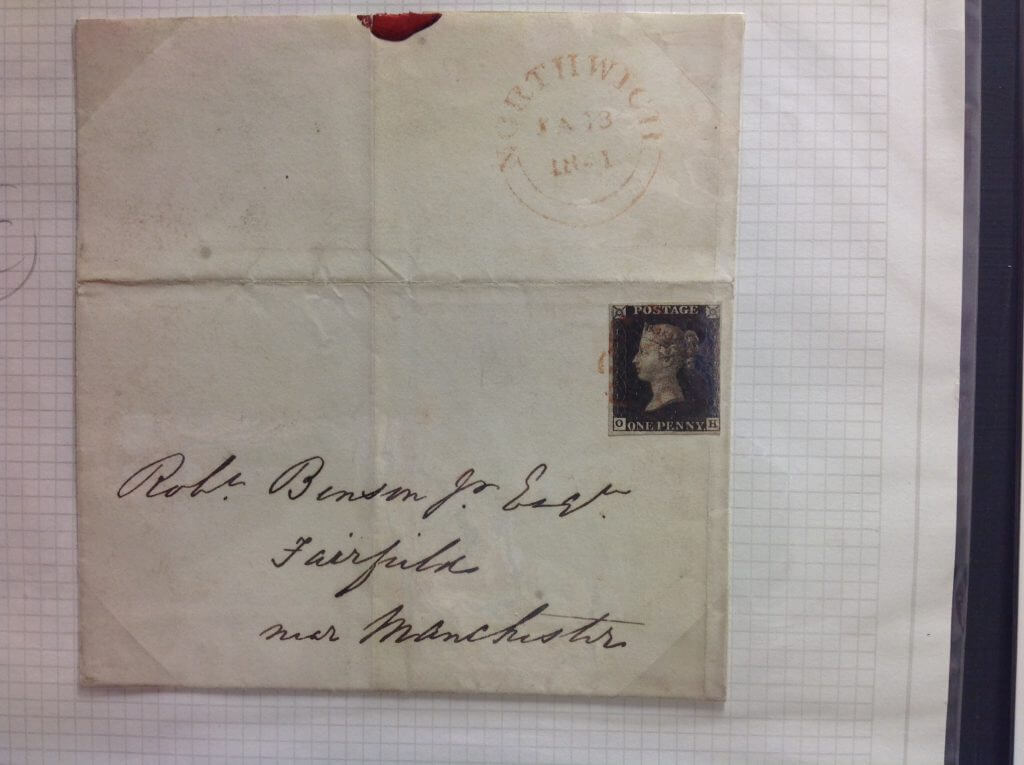 NORTHWICH
JA 13
1841
POSTAGE
O ONE PENNY H
Robt. Benson Jr. Esqr.
Fairfield
near Manchester